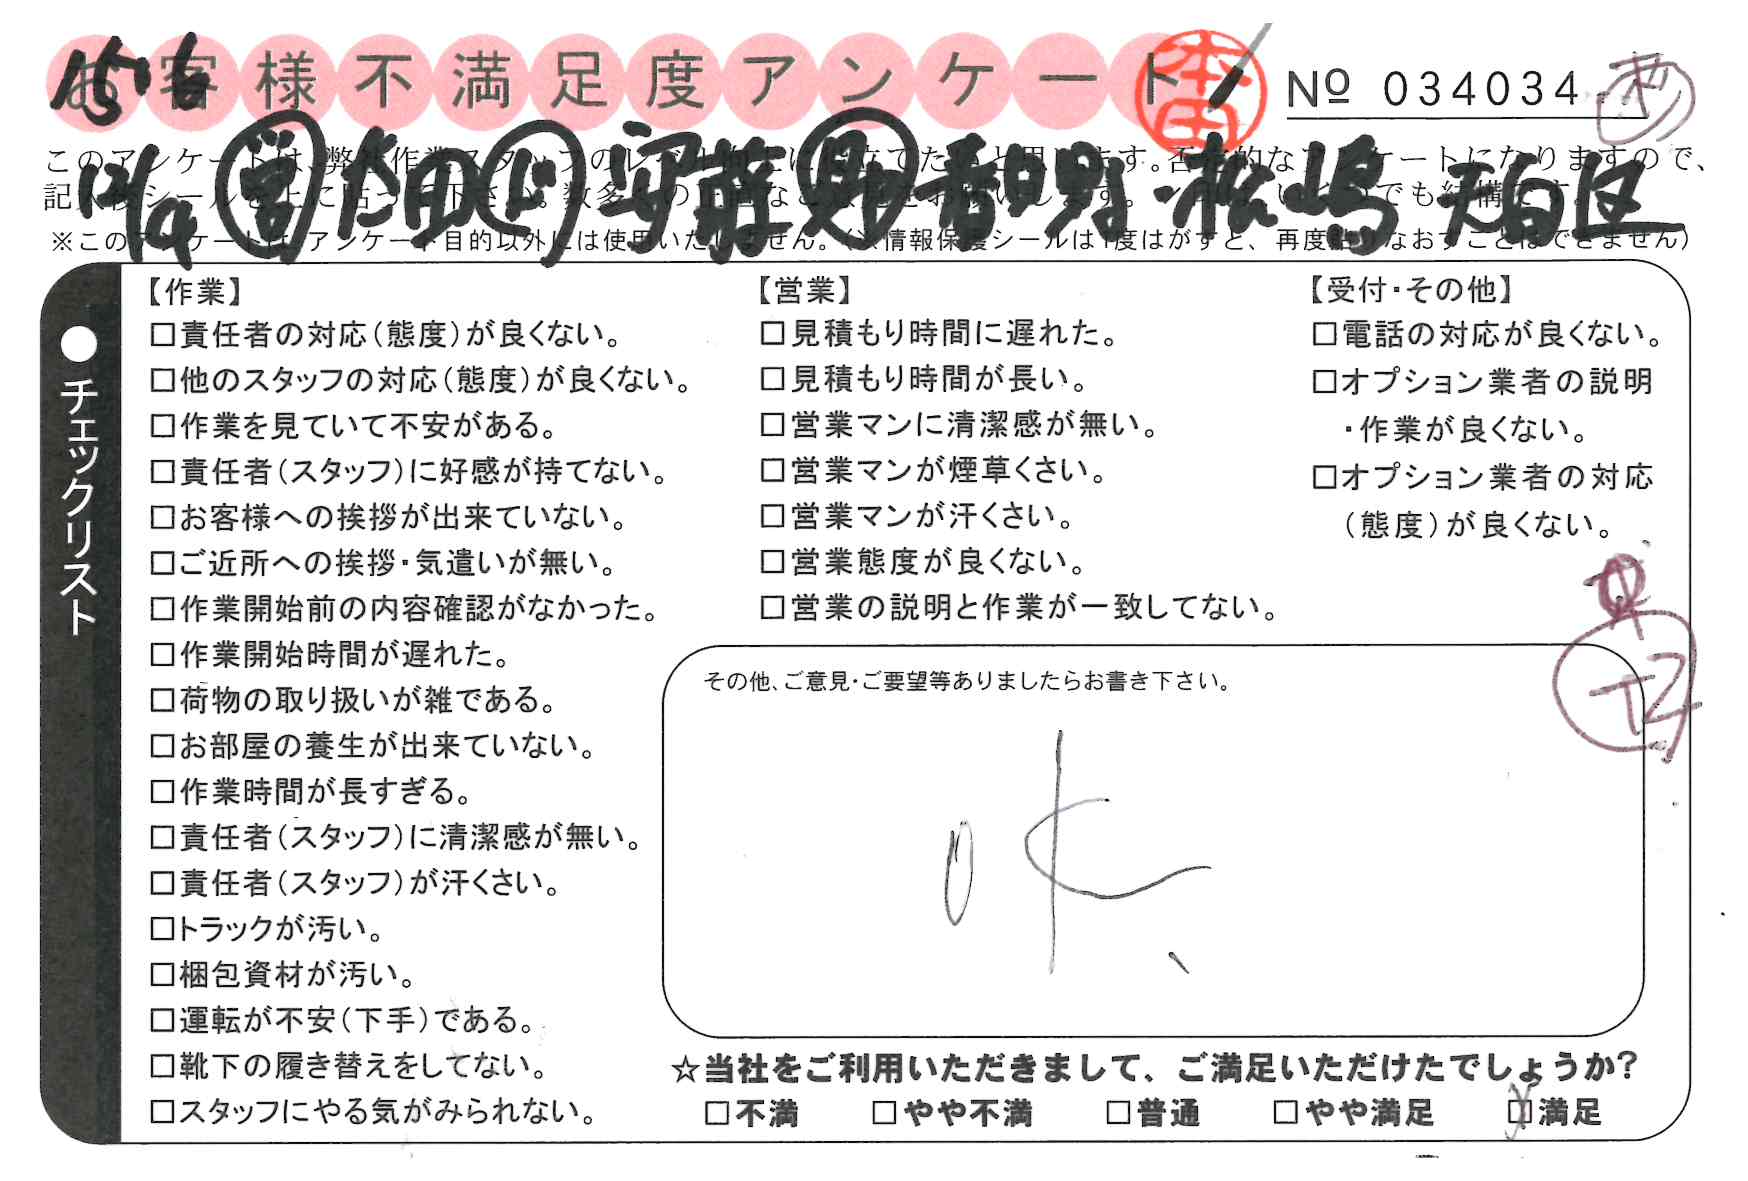 お客様不満足度アンケート
本田
No 034034
このアンケートは、弊社作業スタッフのレベル向上に役立てたいと思います。否定的なアンケートになりますので、
記入後シールを上に貼って下さい。数多くの正直なご意見をお願いします。
※このアンケートは、アンケート目的以外には使用いたしません。(※情報保護シールは1度はがすと、再度貼りなおすことはできません)
12/14 営 安藤 松嶋 天白区
●チェックリスト
【作業】
□責任者の対応(態度)が良くない。
□他のスタッフの対応(態度)が良くない。
□作業を見ていて不安がある。
□責任者(スタッフ)に好感が持てない。
□お客様への挨拶が出来ていない。
□ご近所への挨拶・気遣いが無い。
□作業開始前の内容確認がなかった。
□作業開始時間が遅れた。
□荷物の取り扱いが雑である。
□お部屋の養生が出来ていない。
□作業時間が長すぎる。
□責任者(スタッフ)に清潔感が無い。
□責任者(スタッフ)が汗くさい。
□トラックが汚い。
□梱包資材が汚い。
□運転が不安(下手)である。
□靴下の履き替えをしてない。
□スタッフにやる気がみられない。
【営業】
□見積もり時間に遅れた。
□見積もり時間が長い。
□営業マンに清潔感が無い。
□営業マンが煙草くさい。
□営業マンが汗くさい。
□営業態度が良くない。
□営業の説明と作業が一致してない。
【受付・その他】
□電話の対応が良くない。
□オプション業者の説明
・作業が良くない。
□オプション業者の対応
(態度)が良くない。
その他、ご意見・ご要望等ありましたらお書き下さい。
OK
☆当社をご利用いただきまして、ご満足いただけたでしょうか?
□不満 □やや不満 □普通 □やや満足 □満足